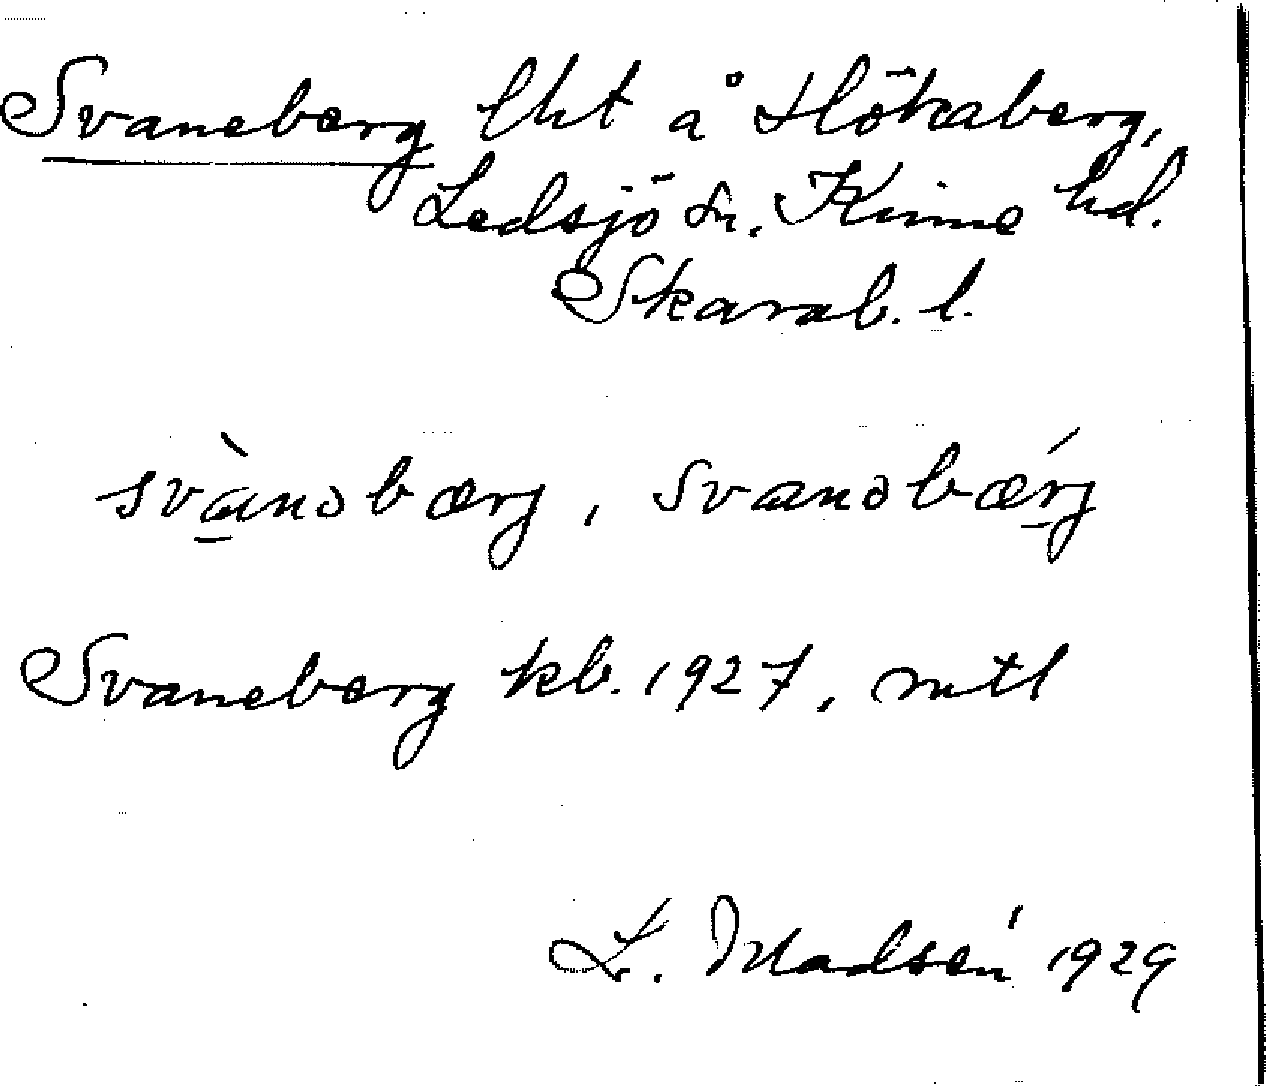 Svaneberg lht å Hökaberg,
Ledsjö sn. Kinne hd.
Skarab. l.
svànəbærj, svanəbǽrj
Svaneberg kb. 1927, mtl
L. Madsén 1929